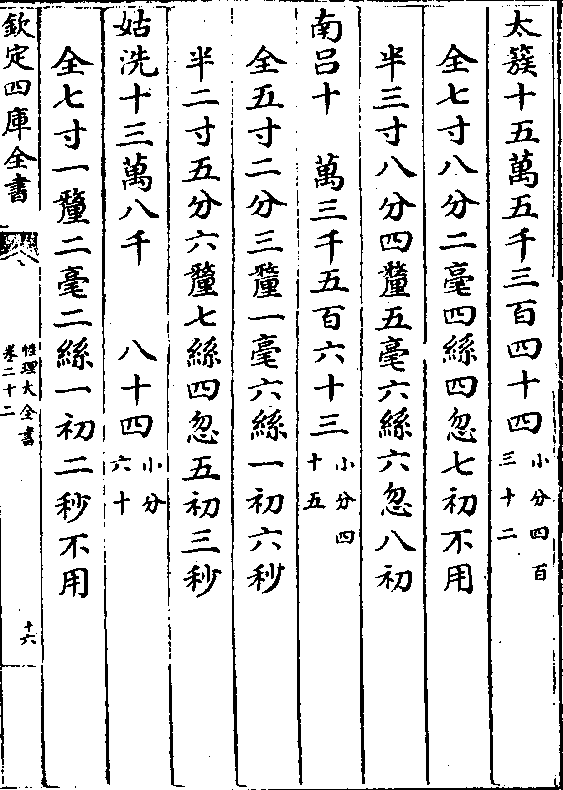 太簇十五萬五千三百四十四小分四百三十二
全七寸八分二毫四絲四忽七初不用
半三寸八分四釐五毫六絲六忽八初
南呂十　萬三千五百六十三小分四十五
全五寸二分三釐一毫六絲一初六秒
半二寸五分六釐七絲四忽五初三秒
姑洗十三萬八千　八十四小分六十
全七寸一釐二毫二絲一初二秒不用
欽定四庫全書
性理大全書
卷二十二
十六